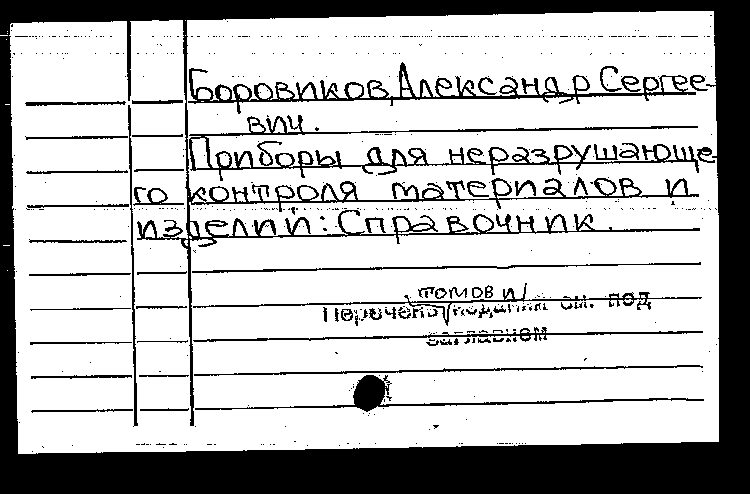 Боровиков, Александр Сергее-
вич.
Приборы для неразрушающе-
го контроля материалов и
изделий: Справочник.
томов и/
Перечень изданий см. под
заглавием